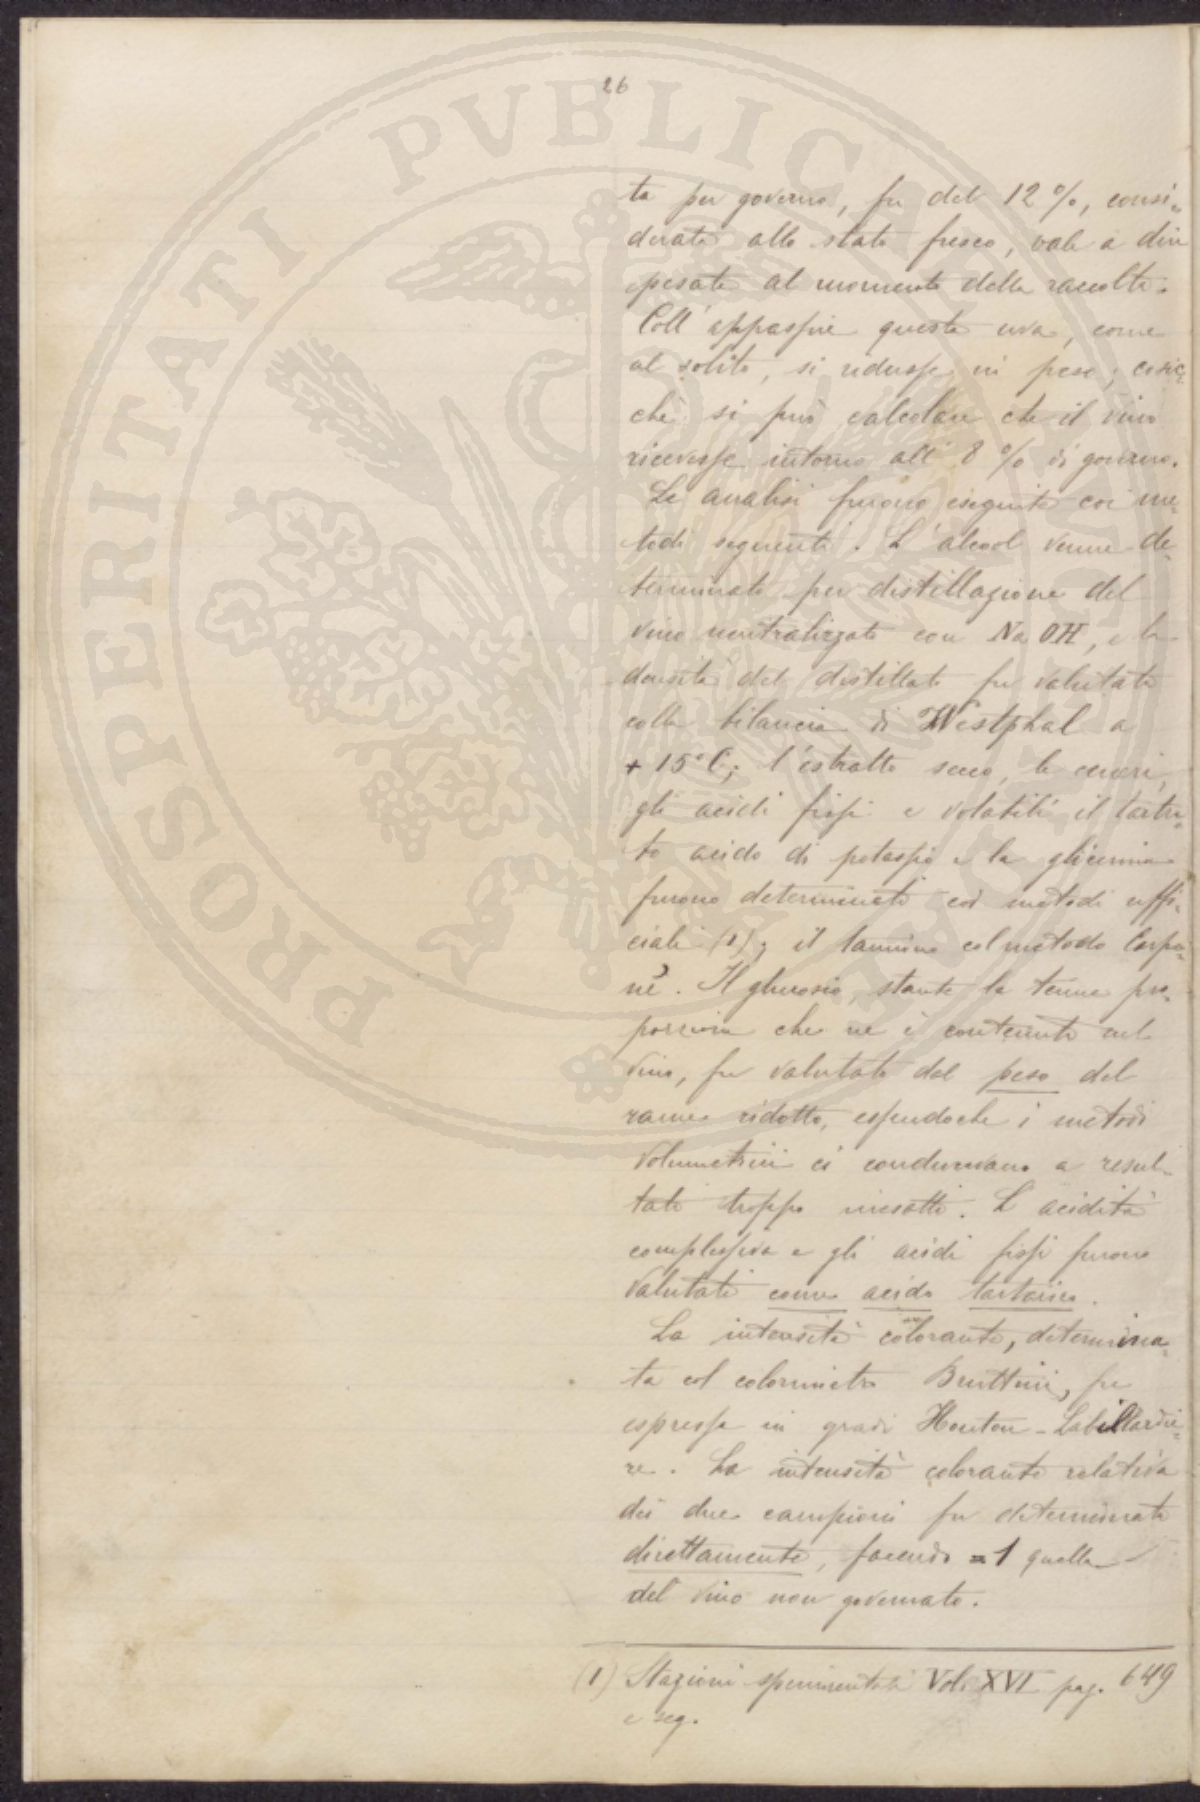 26
ta per governo, fu del 12 %, consi=
derata allo stato fresco, vale a dire
pesata al momento della raccolta.
Coll' appassire questa uva, come
al solito, si ridusse in peso, cosic=
chè si può calcolare che il vino
ricevesse intorno all' 8 % di governo.
Le analisi furono eseguite coi me=
todi seguenti. L' alcool venne de=
terminato per distillazione del
vino neutralizzato con Na OH, e la
densità del distillato fu valutata
colla bilancia di Westphal a
+ 15° C; l' estratto secco, le ceneri,
gli acidi fissi e volatili il tartra
to acido di potassio e la glicerina
furono determinati coi metodi uffi=
ciali (1); il tannino col metodo Carpe=
nè. Il glucosio, stante la tenue pro=
porzione che ne è contenuta nel
vino, fu valutato dal peso del
rame ridotto, essendochè i metodi
volumetrici ci conducevano a resul=
tati troppo inesatti. L' acidità
complessiva e gli acidi fissi furono
valutati come acido tartarico.
La intensità colorante, determina=
ta col colorimetro Bruttini, fu
espressa in gradi Houton - Labillardiè=
re. La intensità colorante relativa
dei due campioni fu determinata
direttamente, facendo = 1 quella
del vino non governato.
(1) Stazioni sperimentali Vol. XVI pag. 649
e seg.
PROSPERITATI PVBLICAE